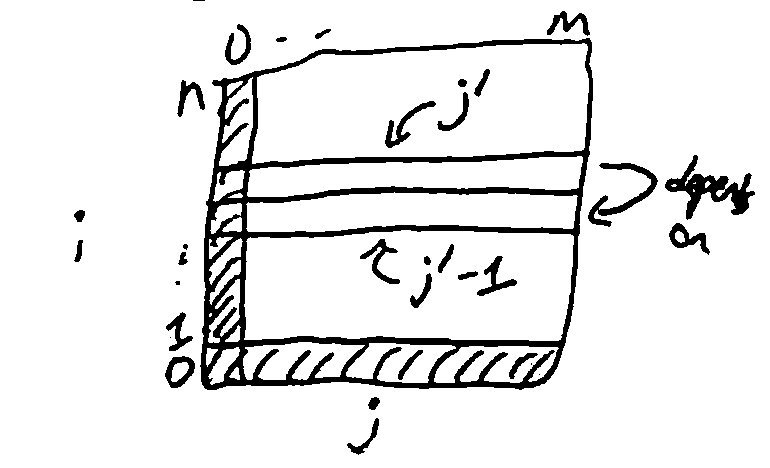 0 . . . m
n
j'
depends
on
i
:
j'-1
1
0
j